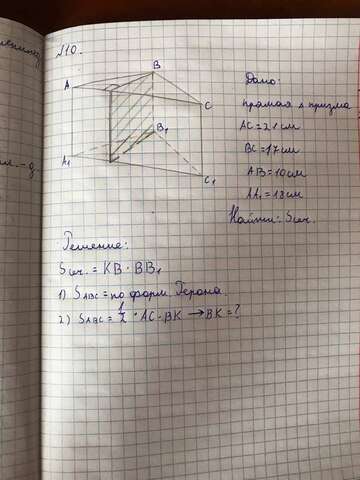 №10.
B
A
C
B₁
A₁
C₁
Дано:
прямая Δ призма
AC=21см
BC=17см
AB=10см
AA₁=18см
Найти: Sсеч.
Решение:
Sсеч.=KB·BB₁
1) SABC=по форм. Герона.
2) SABC=1/2·AC·BK→BK=?